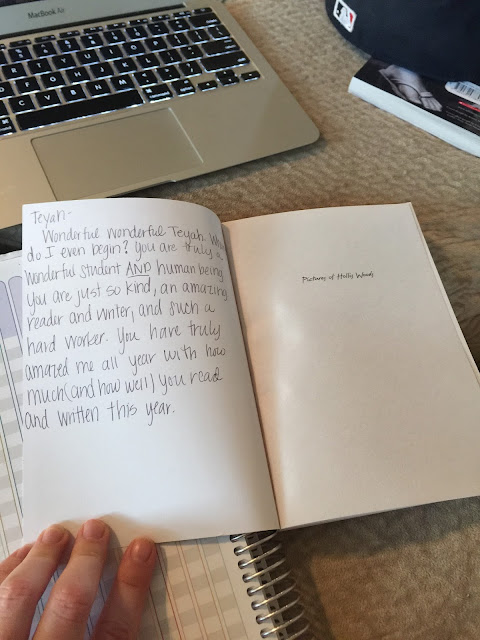 MacBook Air
Teyah-
Wonderful wonderful Teyah.
do I even begin? You are truly a
wonderful student AND human being
You are just so kind, an amazing
reader and writer, and such a
hard worker. You have truly
amazed me all year with how
much (and how well) you read
and written this year.
Pictures of Hollis Woods